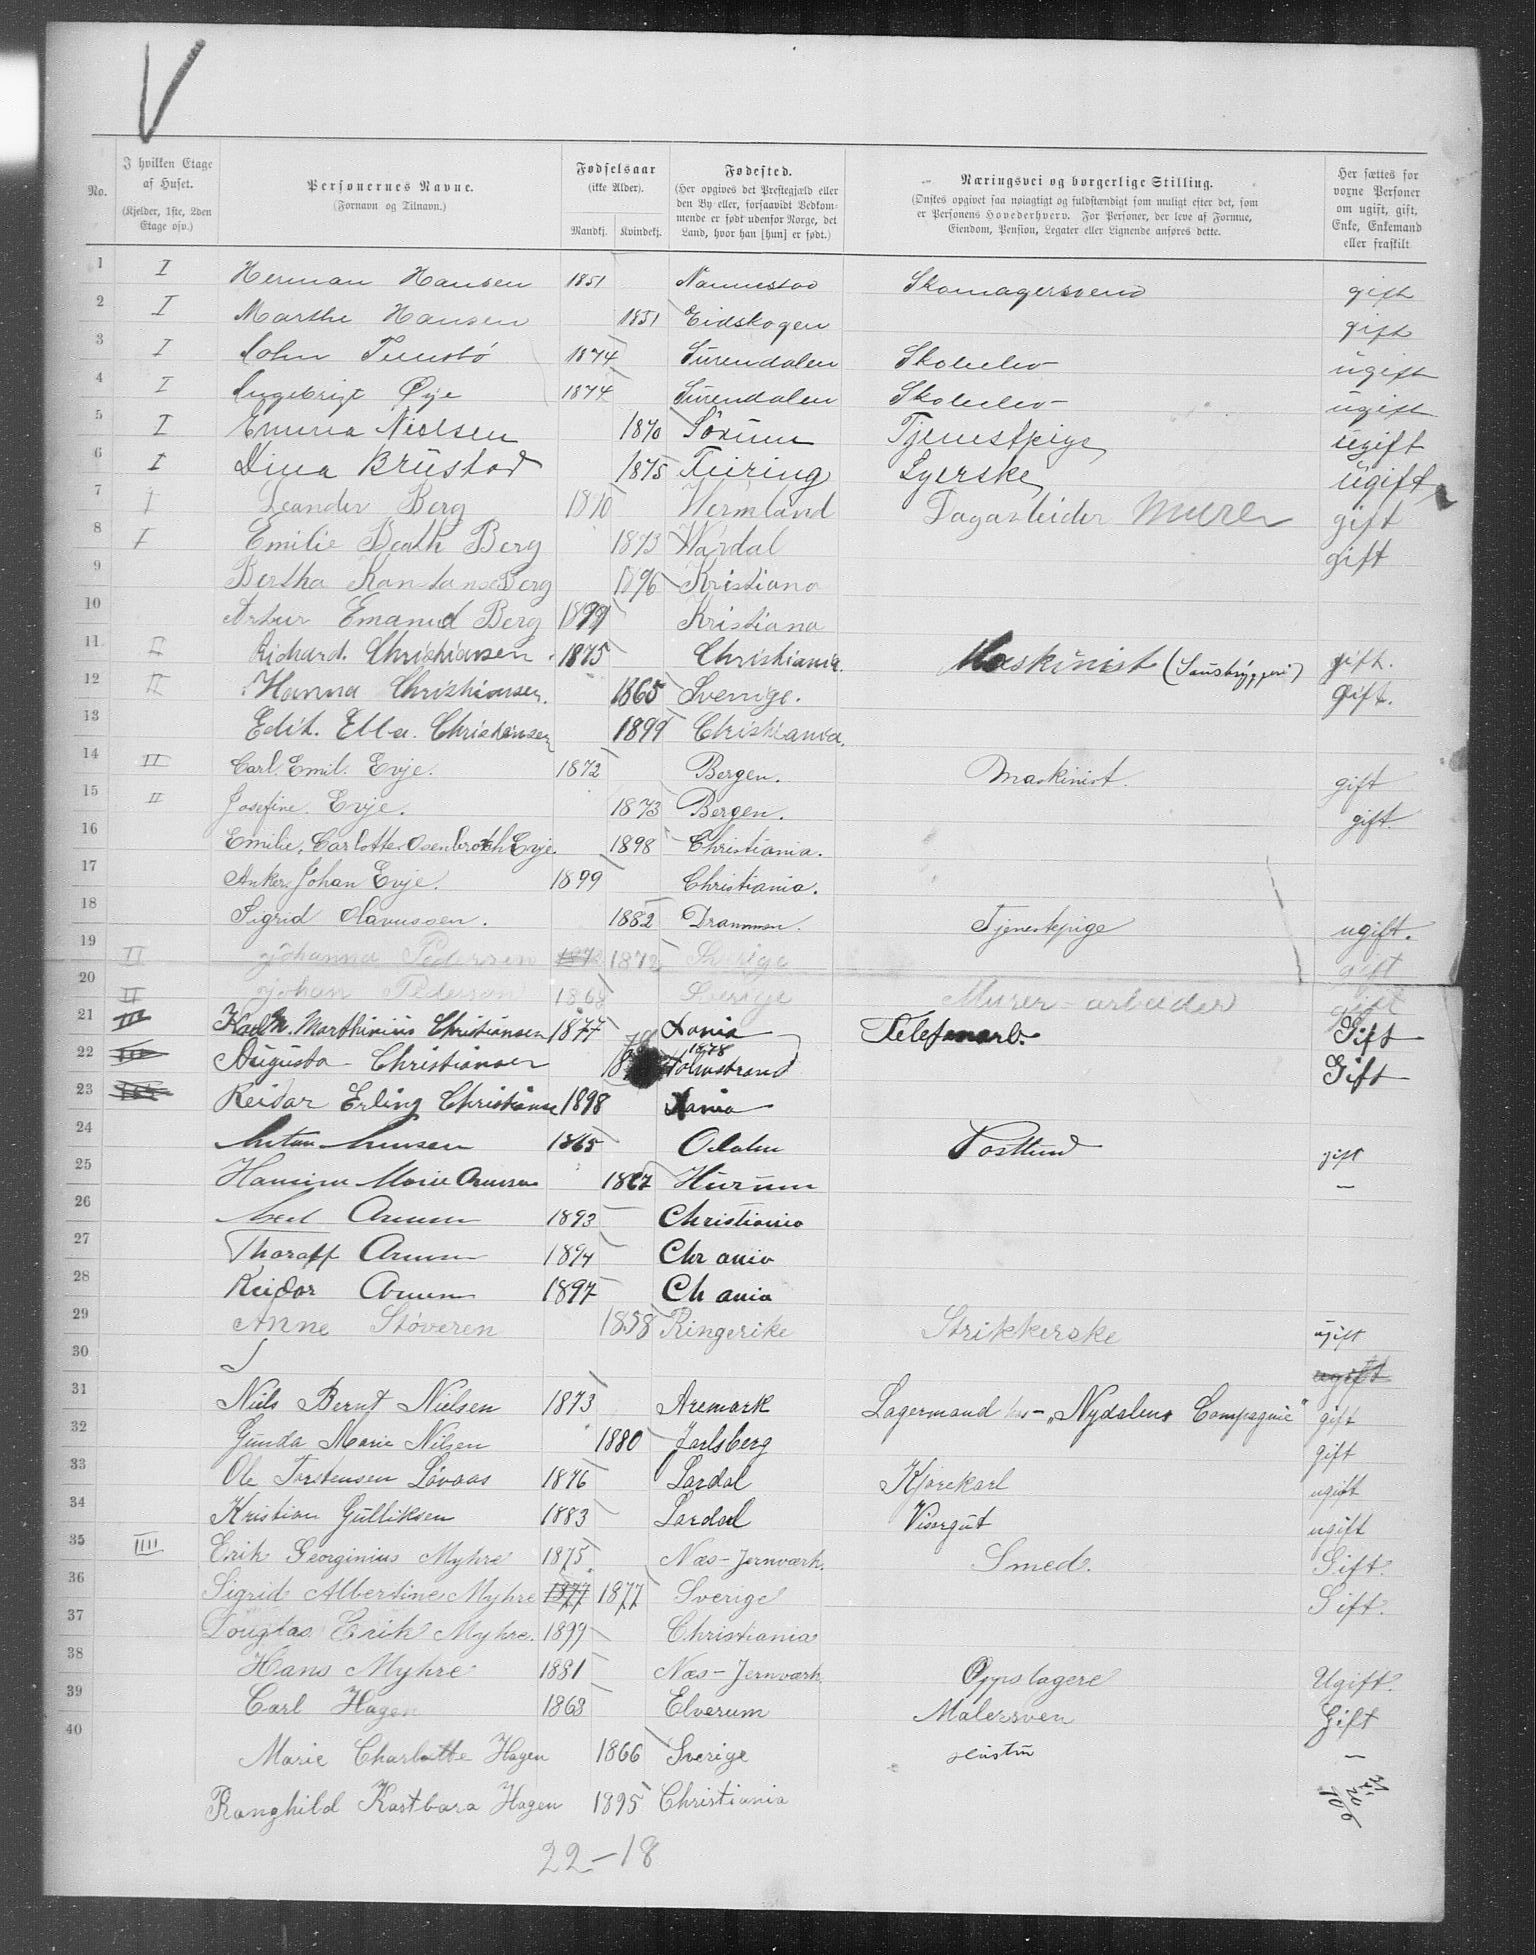 V
No. | I hvilken Etage af Huset. (Kjelder, 1ste, 2den Etage osv.) | Personernes Navne. (Fornavn og Tilnavn.) | Fødselsaar (ikke Alder). Mandkj. Kvindekj. | Fødested. (Her opgives det Prestegjæld eller den By eller, forsaavidt Vedkommende er født udenfor Norge, det Land, hvor han [hun] er født.) | Næringsvei og borgerlige Stilling. (Ønskes opgivet saa nøiagtigt og fuldstændigt som muligt efter det, som er Personens Hovederhverv. For Personer, der leve af Formue, Eiendom, Pension, Legater eller Lignende anføres dette. | Her sættes for voxne Personer om ugift, gift, Enke, Enkemand eller fraskilt
1 I Herman Hansen 1851 Nannestad Skomagersvend gift
2 I Marthe Hansen 1851 Eidskogen gift
3 I John 1874 Surendalen Skoleelev ugift
4 I Ingebrigt Øye 1874 Surendalen Skoleelev ugift
5 I Emma Nielsen 1870 Sörum Tjenestpige ugift
6 I Dina Brustad 1875 Feiring Syerske ugift
7 I Leander Berg 1870 Wermland Dagarbeider Murer gift
8 I Emilie Berg 1873 Wardal gift
9 Bertha Berg 1896 Kristiana
10 Artur Emanuel Berg 1899 Kristiana
11 II Richard. Christiansen. 1875 Christiania. Maskinist gift.
12 II Hanna Christiansen. 1865 Sverrige. gift.
13 Edit. Ella. Christiansen 1899 Christiania.
14 II Carl. Emil. Evje. 1872 Bergen. Maskinist. gift
15 II Josefine. Evje. 1873 Bergen. gift.
16 Emilie. Carlotte Evje. 1898 Christiania.
17 Anker. Johan Evje. 1899 Christiania.
18 Sigrid Olavussen. 1882 Drammen. Tjenestepige ugift.
19 II Johanna Pedersen 1872 1872 Sverige gift
20 II Johan Pederson 1868 Sverige Murer-arbeider gift
21 III Karl M. Marthinius Christiansen 1877 Xania Telefonarb. Gift
22 III Augusta Christiansen 78 1878 Holmstrand Gift
23 Reidar Erling Christianse 1898 Xania
24 Anton 1865 Odalen Postbud gift
25 Marie 1867 Hurum —
26 Axel 1893 Christiania
27 Thoralf 1894 Chr ania
28 Reidar 1897 Ch ania
29 Anne Støveren 1858 Ringerike Strikkerske ugift
30 ugift
31 Niels Bernt Nielsen 1873 Aremark Lagermand hos „Nydalens Compagnie" gift
32 Gunda Marie Nilsen 1880 Jarlsberg gift
33 Ole Torstensen Lövaas 1876 Lardal Kjørekarl ugift
34 Kristian Gulliksen 1883 Lardal Visergut ugift
35 IIII Erik Georginius Myhre 1875 Næs-Jernværk. Smed. Gift.
36 Sigrid Albertine Myhre 1877 1877 Sverige Gift.
37 Douglas Erik Myhre. 1899 Christiania
38 Hans Myhre 1881 Næs-Jernværk. Oppslagere Ugift.
39 Carl Hagen 1863 Elverum Malersven Gift
40 Marie Charlotte Hagen 1866 Sverige Hustru —
Ranghild Kastbara Hagen 1895 Christiania
22-18